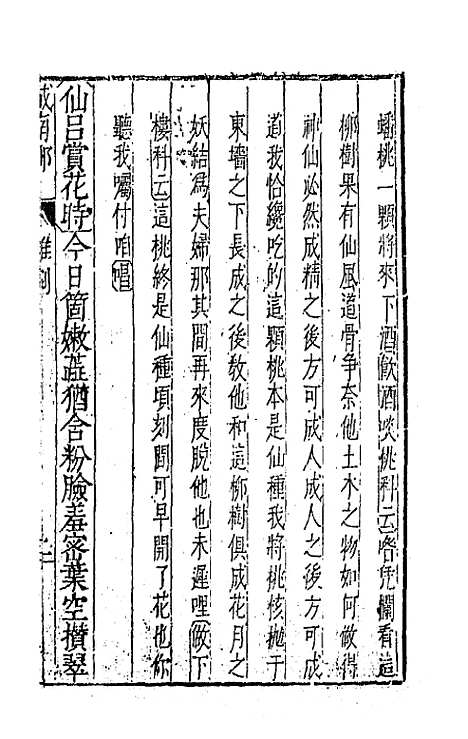 蟠桃一顆將來下酒飲酒啖桃科云咯凭欄看這
柳樹果有仙風道骨争奈他土木之物如何做得
神仙必然成精之後方可成人成人之後方可成
道我恰纔吃的這顆桃本是仙種我將桃核抛于
東墻之下長成之後教他和這柳樹俱成花月之
妖結爲夫婦那其間再來度脱他也未遲哩做下
樓科云這桃終是仙種頃刻間可早開了花也你
聽我囑付咱唱
仙吕賞花時今日箇嫩蕋猶含粉臉羞密葉空攅翠
城南柳 雜劇 二